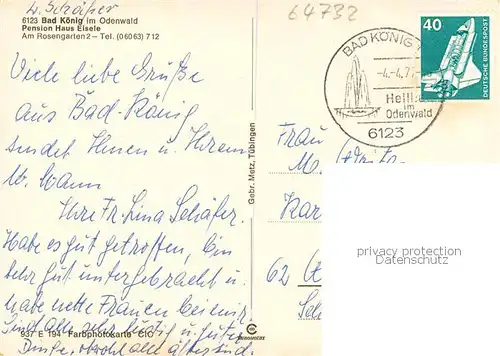 L. Schäfer
64732
6123 Bad König im Odenwald
Pension Haus Eisele
Am Rosengarten 2 – Tel. (06063) 712
Viele liebe Grüße
aus Bad-König
sendet Ihnen u. Ihrem
W. Mann
Ihre Fr. Lina Schäfer.
Habe es gut getroffen, bin
sehr gut untergebracht u.
habe nette Frauen bei mir.
Sind alle sehr lustig u. guter
Dinge, obwohl alle
937 E 194 Farbphotokarte CIC
Gebr. Metz, Tübingen
BAD KÖNIG
-4.-4.77
Heilb
im
Odenwald
6123
40
DEUTSCHE BUNDESPOST
Frau
62
privacy protection
Datenschutz